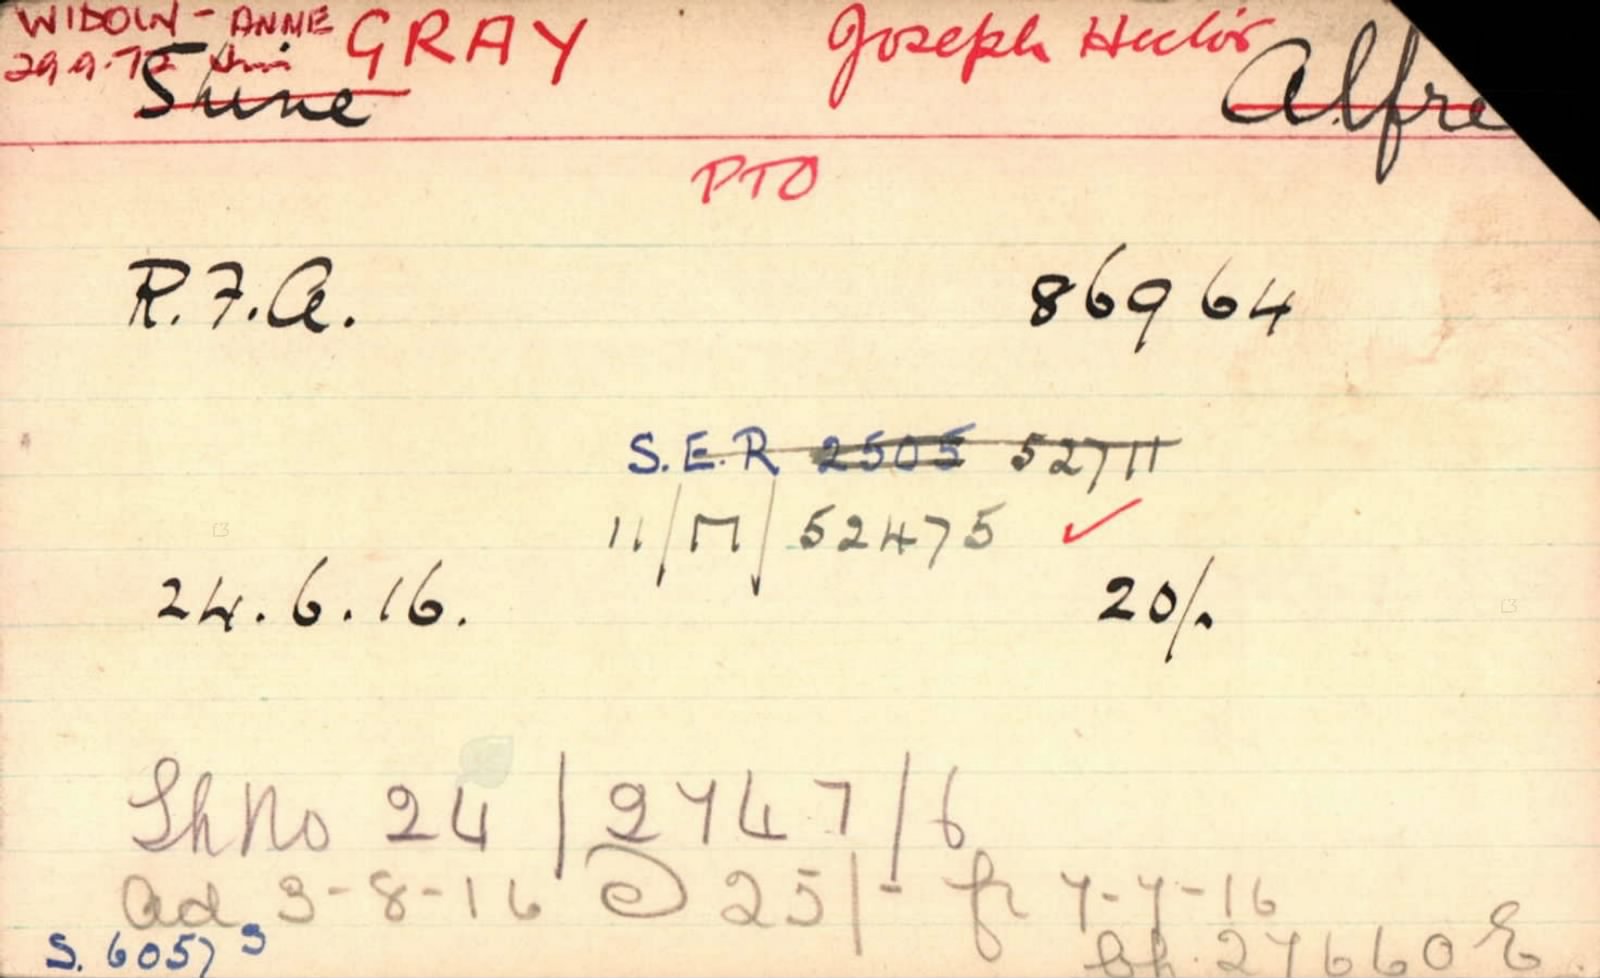 WIDOW - ANNE GRAY Joseph Hector
29.9.72
Shine Alfre
PTO
R.F.A. 86964
S.E.R 2505 52711
11/M/52475 ✓
24.6.16. 20/.
Sh No 24/2747/6
ad 3-8-16 @ 25/- fr 7-7-16
S. 6057 S Ch. 27660 E